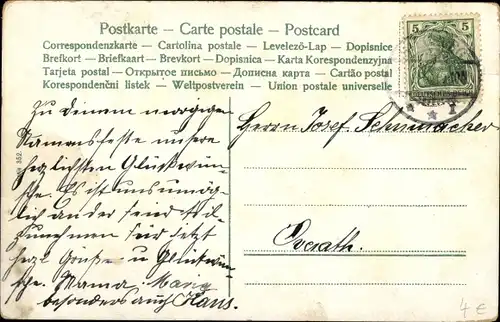 Postkarte — Carte postale — Postcard
Correspondenzkarte — Cartolina postale — Levelező-Lap — Dopisnice
Brefkort — Briefkaart — Brevkort — Dopisnica — Karta Korespondenzyjna
Tarjeta postal — Открытое письмо — Дописна карта — Cartão postal
Korespondenční listek — Weltpostverein — Union postale universelle
5 5
Zu Deinem morgigen
Namensfeste unsere
herzlichsten Glückwün-
sche. Es ist uns unmög-
lich an der Feier teil-
zunehmen.
herzl. Grüße u. Glückwün-
sche. Mama, Maria
besonders auch Hans.
Herrn Josef Schumacher
Overath.
352
4 €